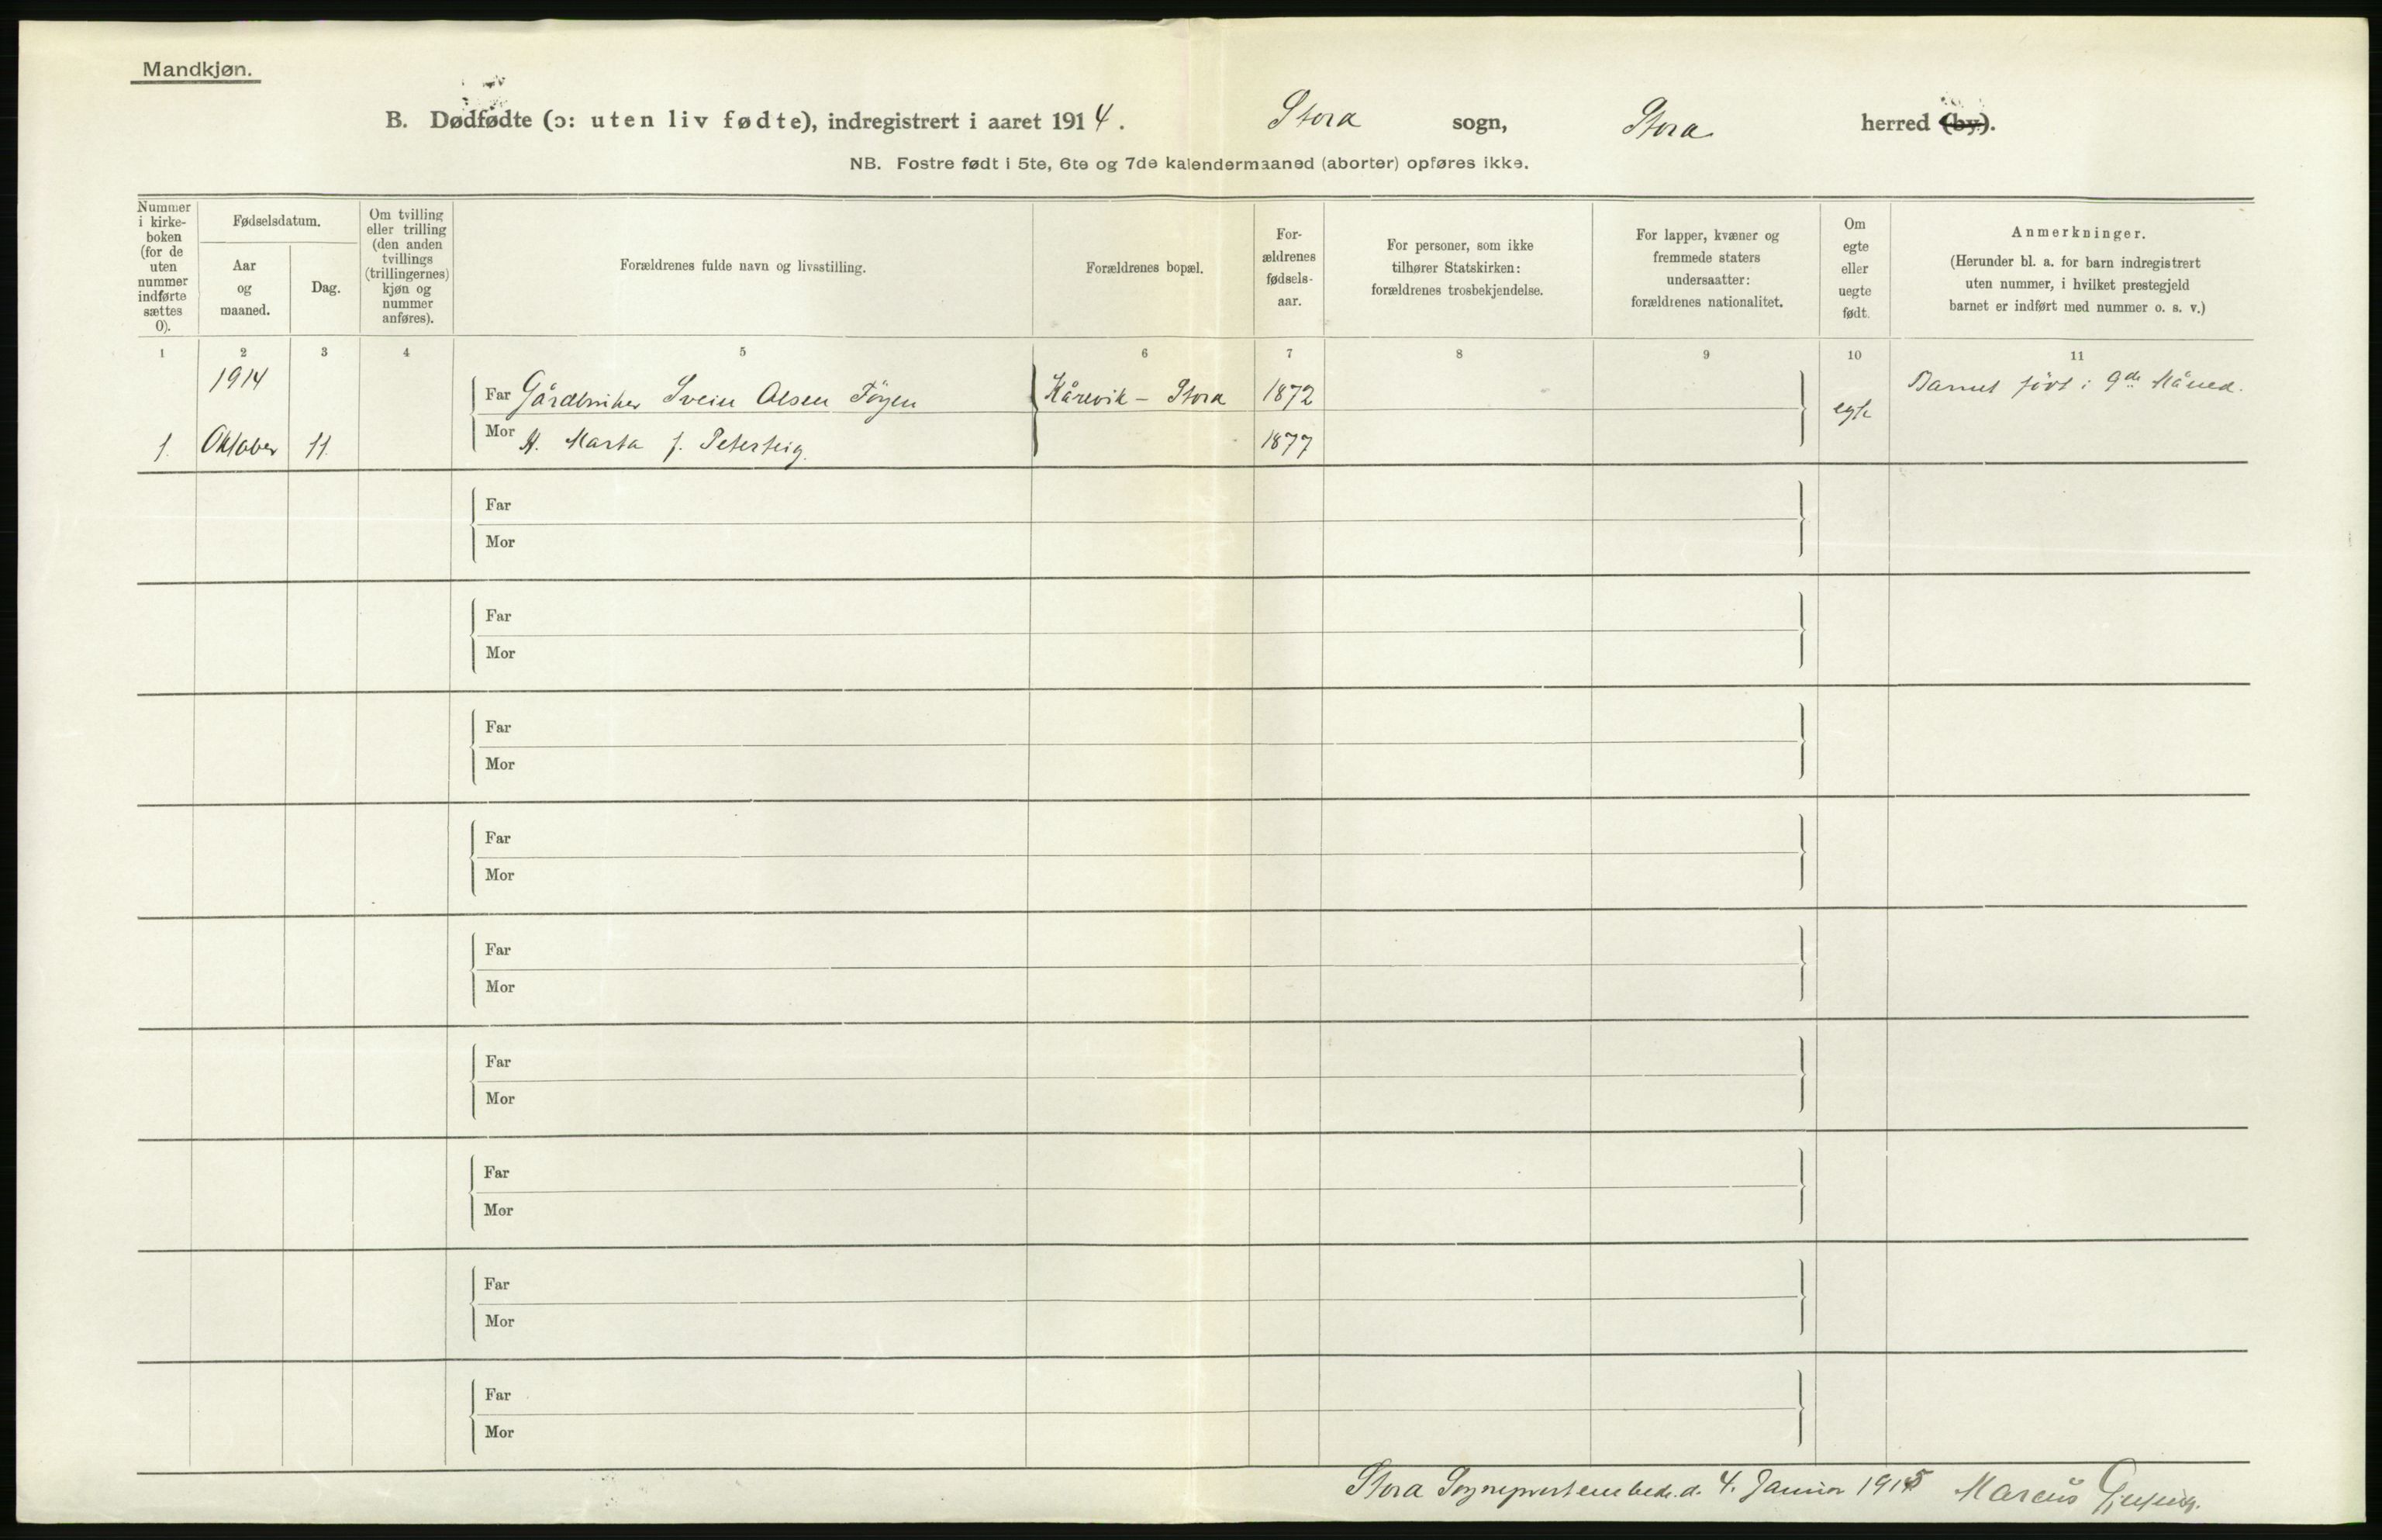 Mandkjøn.
B. Dødfødte (ɔ: uten liv fødte), indregistrert i aaret 1914. Stora sogn, Stora herred (by).
NB. Fostre født i 5te, 6te og 7de kalendermaaned (aborter) opføres ikke.
Nummer
i kirke-
boken
(for de
uten
nummer
indførte
sættes
0).
Fødselsdatum.
Aar
og
maaned.
Dag.
Om tvilling
eller trilling
(den anden
tvillings
(trillingernes)
kjøn og
nummer
anføres).
Forældrenes fulde navn og livsstilling.
Forældrenes bopæl.
For-
ældrenes
fødsels-
aar.
For personer, som ikke
tilhører Statskirken:
forældrenes trosbekjendelse.
For lapper, kvæner og
fremmede staters
undersaatter:
forældrenes nationalitet.
Om
egte
eller
uegte
født.
Anmerkninger.
(Herunder bl. a. for barn indregistrert
uten nummer, i hvilket prestegjeld
barnet er indført med nummer o. s. v.)
1 2 3 4 5 6 7 8 9 10 11
1914
Far Gårdbruker Svein Olsen Föyen Kårevik - Stora 1872 egte Barnet född i 9de Måned.
1. Oktober 11. Mor H. Marta f. Petersteig. 1877
Far
Mor
Far
Mor
Far
Mor
Far
Mor
Far
Mor
Far
Mor
Far
Mor
Far
Mor
Far
Mor
Stora Sogneprestembede. d. 4. Januar 1915 Marcus